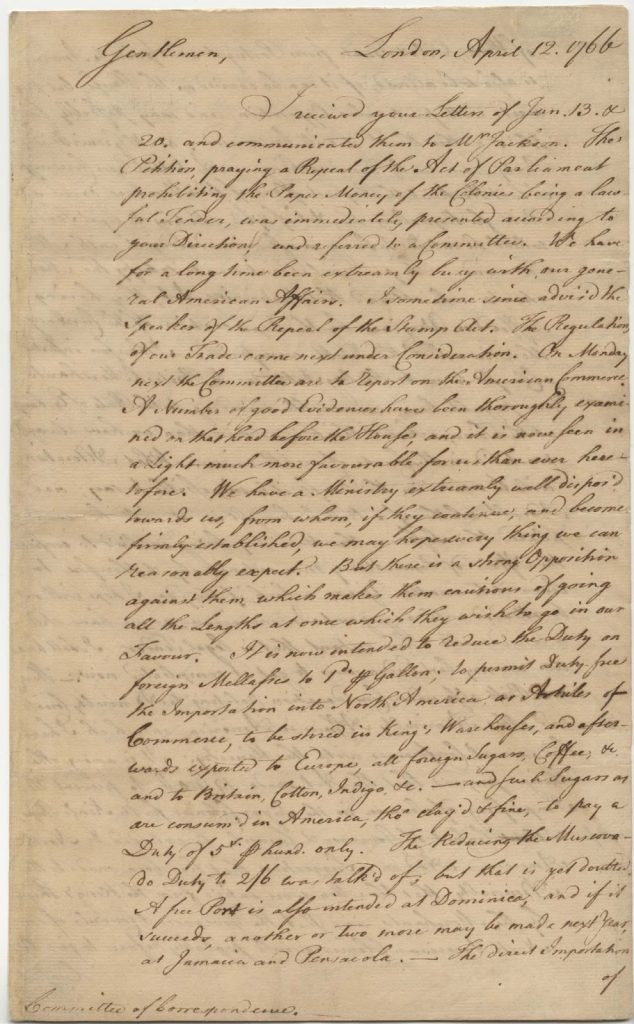 Gentlemen, London, April 12. 1766
I received your Letters of Jan. 13. &
20. and communicated them to Mr Jackson. The
Petition, praying a Repeal of the Act of Parliament
prohibiting the Paper Money of the Colonies being a law-
ful Tender, was immediately presented according to
your Direction, and referred to a Committee. We have
for a long time been extreamly busy with our gene-
ral American Affairs. I sometime since advis'd the
Speaker of the Repeal of the Stamp Act. The Regulation
of our Trade came next under Consideration. On Monday
next the Committee are to Report on the American Commerce.
A Number of good Evidences have been thoroughly exami-
ned on that head before the House, and it is now seen in
a Light much more favourable for us than ever here-
tofore. We have a Ministry extreamly well dispos'd
towards us, from whom, if they continue, and become
firmly established, we may hope every thing we can
reasonably expect. But there is a strong Opposition
against them, which makes them cautious of going
all the Lengths at once which they wish to go in our
Favour. It is now intended to reduce the Duty on
foreign Mellasses to 1d. ⅌ Gallon; to permit Duty free
the Importation into North America as Articles of
Commerce, to be stored in King's Warehouses, and after-
wards exported to Europe, all foreign Sugars, Coffee, &
and to Britain, Cotton, Indigo, &c. — and such Sugars as
are consum'd in America, tho' clay'd & fine, to pay a
Duty of 5s. ⅌ hund. only. The Reducing the Muscova-
do Duty to 2/6 was talk'd of, but that is yet doubted.
A free Port is also intended at Dominica, and if it
succeeds, another or two more may be made next Year,
at Jamaica and Pensacola. — The direct Importation
of
Committee of Correspondence.